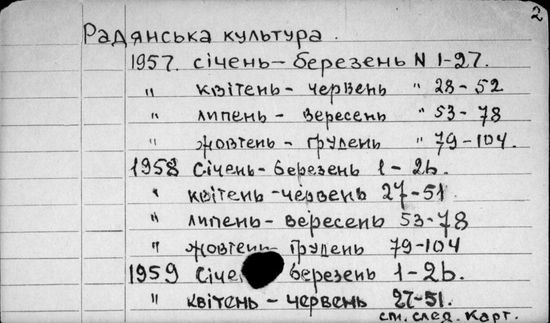 2
Радянська культура.
1957. січень - березень N 1-27.
" квітень - червень " 28-52
" липень - вересень " 53-78
" жовтень - грудень " 79-104.
1958 Січень - березень 1-26.
" квітень - червень 27-51.
" липень - вересень 53-78
" жовтень грудень 79-104
1959 Січе березень 1-26.
" квітень - червень 27-51.
см. след. карт.